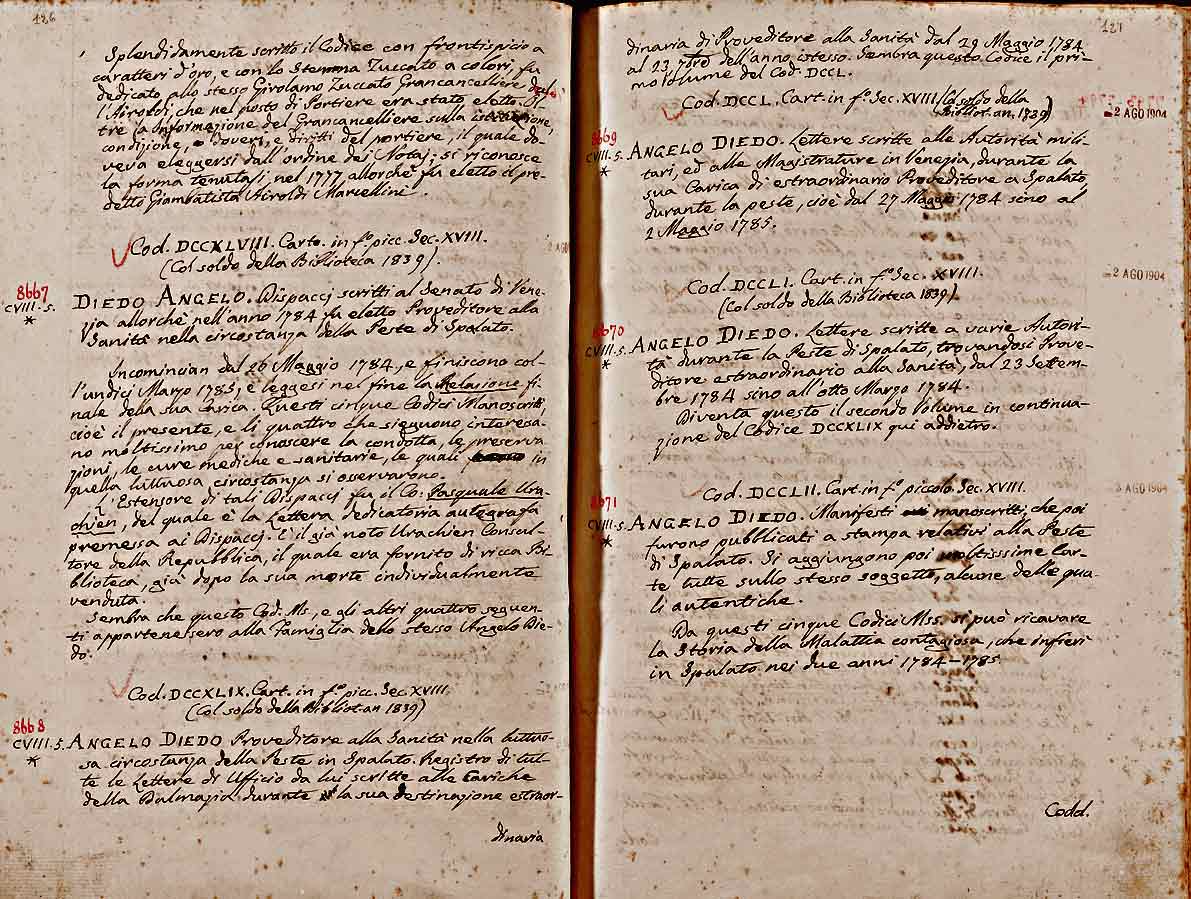 126
Splendidamente scritto il Codice con frontispicio a
caratteri d'oro, e con lo Stemma Zuccato a colori, fu
dedicato allo stesso Girolamo Zuccato Grancancelliere dallo
Airoldi, che nel posto di Portiere era stato eletto. Ol-
tre la Informazione del Grancancelliere sulla istituzione,
condizione, Doveri, e diritti del portiere, il quale do-
veva eleggersi dall'ordine dei Notaj; si riconosce
la forma tenutasi, nel 1777 allorchè fu eletto il pre-
detto Giambatista Airoldi Marcellini.
Cod. DCCXLVIII. Carto. in fº picc. Sec. XVIII.
(Col soldo della Biblioteca 1839).
2 AGO
8667
CVIII. 5.
*
DIEDO ANGELO. Dispacci scritti al Senato di Vene-
zia allorchè nell'anno 1784 fu eletto Proveditore alla
Sanità nella circostanza della Peste di Spalato.
Incomincian dal 26 Maggio 1784, e finiscono col-
l'undici Marzo 1785, e leggesi nel fine la Relazione fi-
nale della sua Carica. Questi cinque Codici Manoscritti,
cioè il presente, e li quattro che sieguono interessa-
no moltissimo per conoscere la condotta, le preserva
zioni, le cure mediche e sanitarie, le quali in
quella luttuosa circostanza si osservarono.
L'Estensore di tali Dispacci fu il Co: Pasquale Ura-
chien, del quale è la Lettera dedicatoria autografa
premessa ai Dispacci. È il già noto Urachien Consul-
tore della Repubblica, il quale era fornito di ricca Bi-
blioteca, già dopo la sua morte individualmente
venduta.
Sembra che questo Cod. Ms., e gli altri quattro seguen-
ti appartenessero alla Famiglia dello stesso Angelo Die-
do.
Cod. DCCXLIX. Cart. in fº picc. Sec. XVIII.
(Col soldo della Bibliot. an 1839)
8668
CVIII. 5.
*
ANGELO DIEDO Proveditore alla Sanità nella luttuo-
sa circostanza della Peste in Spalato. Registro di tut-
te le Lettere di Ufficio da lui scritte alle Cariche
della Dalmazia durante la sua destinazione estraor-
dinaria
127
dinaria di Proveditore alla Sanità dal 29 Maggio 1784
al 23 7bre dell'anno istesso. Sembra questo Codice il pri-
mo Volume del Cod. DCCL.
Cod. DCCL. Cart. in fº Sec. XVIII (Col soldo della
Bibliot. an. 1839)
2 AGO 1904
8669
CVIII. 5.
*
ANGELO DIEDO. Lettere scritte alle Autorità mili-
tari, ed alle Magistrature in Venezia, durante la
sua Carica di estraordinario Proveditore a Spalato,
durante la peste, cioè dal 27 Maggio 1784 sino al
2 Maggio 1785.
Cod. DCCLI. Cart. in fº Sec. XVIII.
(Col soldo della Biblioteca 1839).
2 AGO 1904
8670
CVIII. 5.
*
ANGELO DIEDO. Lettere scritte a varie Autori-
tà durante la Peste di Spalato, trovandosi Prove-
ditore estraordinario alla Sanità, dal 23 Settem-
bre 1784 sino all'otto Marzo 1784.
Diventa questo il secondo Volume in continua-
zione del Codice DCCXLIX qui addietro.
Cod. DCCLII. Cart. in fº piccolo Sec. XVIII.
3 AGO 1904
8671
CVIII. 5.
*
ANGELO DIEDO. Manifesti manoscritti, che poi
furono pubblicati a stampa relativi alla Peste
di Spalato. Si aggiungono poi moltissime Car-
te tutte sullo stesso soggetto, alcune delle qua-
li autentiche.
Da questi cinque Codici Mss. si può ricavare
la Storia della Malattia contagiosa, che infierì
in Spalato nei due anni 1784-1785.
Codd.